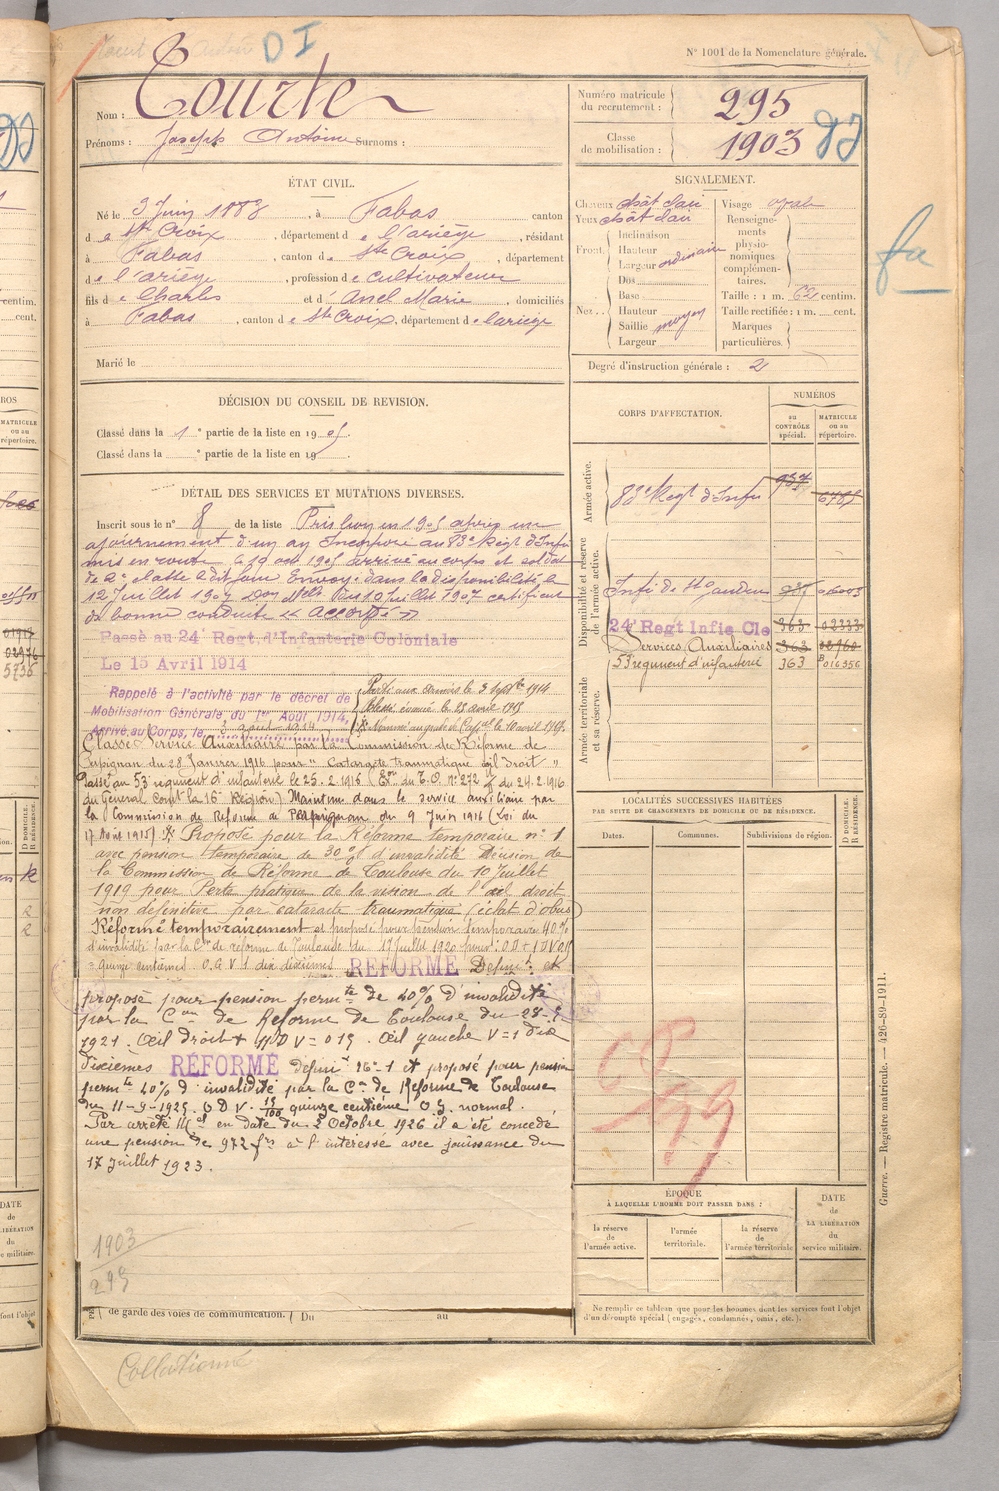 D I
N° 1001 de la Nomenclature générale.
Nom : Courte
Prénoms : Joseph Antoine Surnoms :
Numéro matricule du recrutement : 295
Classe de mobilisation : 1903
ÉTAT CIVIL.
Né le 3 Juin 1883, à Fabas canton
de Ste Croix, département de l'ariège, résidant
à Fabas, canton de Ste Croix, département
de l'ariège, profession de cultivateur
fils de Charles et d' Anel Marie, domiciliés
à Fabas, canton de Ste Croix, département de lariège
Marié le
SIGNALEMENT.
Cheveux chât clair
Yeux chât clair
Front
Inclinaison
Hauteur
Largeur
ordinaire
Nez..
Dos
Base
Hauteur
Saillie
Largeur
moyen
Visage ovale
Renseignements physionomiques complémentaires.
Taille : 1 m. 62 centim.
Taille rectifiée : 1 m. cent.
Marques particulières.
Degré d'instruction générale : 2
fa
DÉCISION DU CONSEIL DE REVISION.
Classé dans la 1e partie de la liste en 1905.
Classé dans la e partie de la liste en 19
DÉTAIL DES SERVICES ET MUTATIONS DIVERSES.
Inscrit sous le n° 8 de la liste Pris bon en 1905 après un
ajournement d'un an Incorporé au 83e Régt d'Infie
mis en route le 19 oct 1905 arrivé au corps et soldat
de 2e classe ledit jour. Envoyé dans la disponibilité le
12 Juillet 1907 Don Mlle du 10 Juillet 1907 certificat
de bonne conduite « accordé »
Passé au 24e Regt d'Infanterie Coloniale
Le 15 Avril 1914
Rappelé à l'activité par le décret de
Mobilisation Générale du 1er Août 1914,
Arrivé au Corps, le 3 août 1914
Porté aux armées le 3 Septbre 1914
Blessé évacué le 23 avril 1915
Nommé au grade de Capal le 10 avril
Classé Service Auxiliaire par la Commission de Réforme de
Perpignan du 28 Janvier 1916 pour " Cataracte traumatique œil Droit "
Passé au 53e regiment d'infanterie le 25.2.1916 (Eon du T.O. n° 272 du 24.2.1916
du Général comt la 16e Région) Maintenu dans le service auxiliaire par
la Commission de Réforme de Perpignan du 9 Juin 1916 (Loi du
17 Août 1915) Proposé pour la Réforme temporaire n° 1
avec pension temporaire de 30 % d'invalidité Décision de
la Commission de Réforme de Toulouse du 10 Juillet
1919 pour Perte pratique de la vision de l'œil droit
non définitive par cataracte traumatique (éclat d'obus)
Réformé temporairement et proposé pour pension temporaire 40 %
d'invalidité par la Con de réforme de Toulouse du 17 Juillet 1920 pour: O.D
quinze centièmes O.G V 1 dix dixièmes RÉFORMÉ Définit. et
proposé pour pension permte de 40% d'invalidité
par la Con de Réforme de Toulouse du
1921. Œil Droit V = 015. Œil gauche V = 1 dix
dixièmes RÉFORMÉ définit et proposé pour pension
permte 40% d'invalidité par la Con de Réforme de Toulouse
du 11-9-1925. O D V. 15/100 quinze centième O.G. normal.
Par arrêté Mel en date du 2 Octobre 1926 il a été concédé
une pension de 972 frs à l'intéressé avec jouissance du
17 Juillet 1923.
1903
295
de garde des voies de communication. Du au
Collationné
CORPS D'AFFECTATION.
NUMÉROS
au CONTRÔLE spécial.
MATRICULE ou au répertoire.
Armée active.
83e Regt d'Infie
Disponibilité et réserve de l'armée active.
Infie de St Gaudens
24e Regt Infie Cle 363 02333
Services Auxiliaires 363 02960
53 régiment d'infanterie 363 016356
Armée territoriale et sa réserve.
LOCALITÉS SUCCESSIVES HABITÉES
PAR SUITE DE CHANGEMENTS DE DOMICILE OU DE RÉSIDENCE.
Dates. Communes. Subdivisions de région.
D DOMICILE. R RÉSIDENCE.
ÉPOQUE
À LAQUELLE L'HOMME DOIT PASSER DANS :
la réserve de l'armée active.
l'armée territoriale.
la réserve de l'armée territoriale
DATE de LA LIBÉRATION du service militaire.
Ne remplir ce tableau que pour les hommes dont les services font l'objet
d'un décompte spécial (engagés, condamnés, omis, etc.).
Guerre. — Registre matricule. — 426-89-1911.